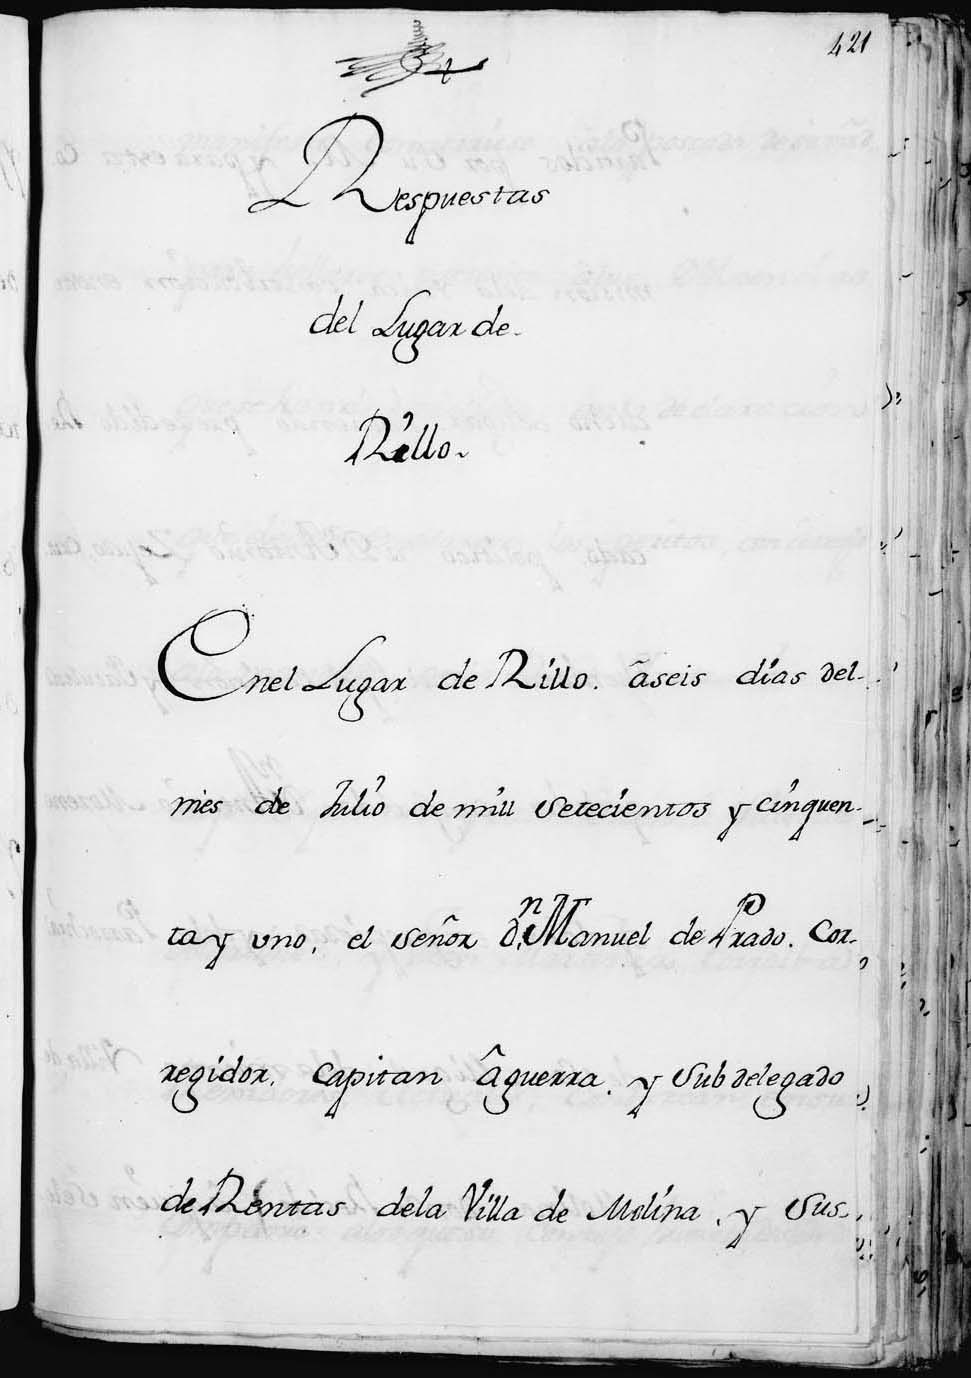 421
Respuestas
del Lugar de
Rillo
Enel Lugar de Rillo. âseis días del
mes de Julio de mill setecientos y cinquen-
ta y uno, el señor Dn Manuel de Prado. Cor-
regidor, Capitan âguerra, y Subdelegado
de Rentas dela Villa de Molina, y Sus